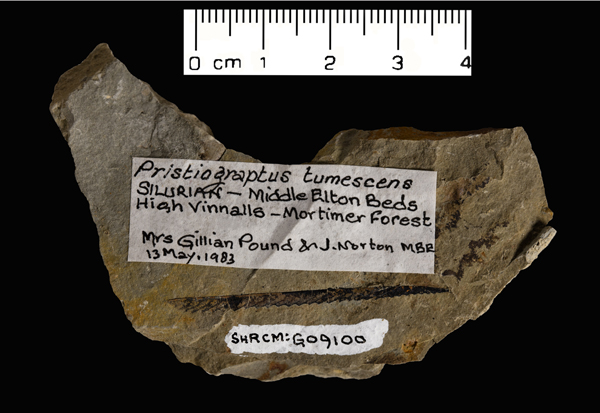 0 cm 1 2 3 4
Pristiograptus tumescens
SILURIAN – Middle Elton Beds
High Vinnalls – Mortimer Forest
Mrs Gillian Pound & J. Norton MBE
13 May, 1983
SHRCM:G09100